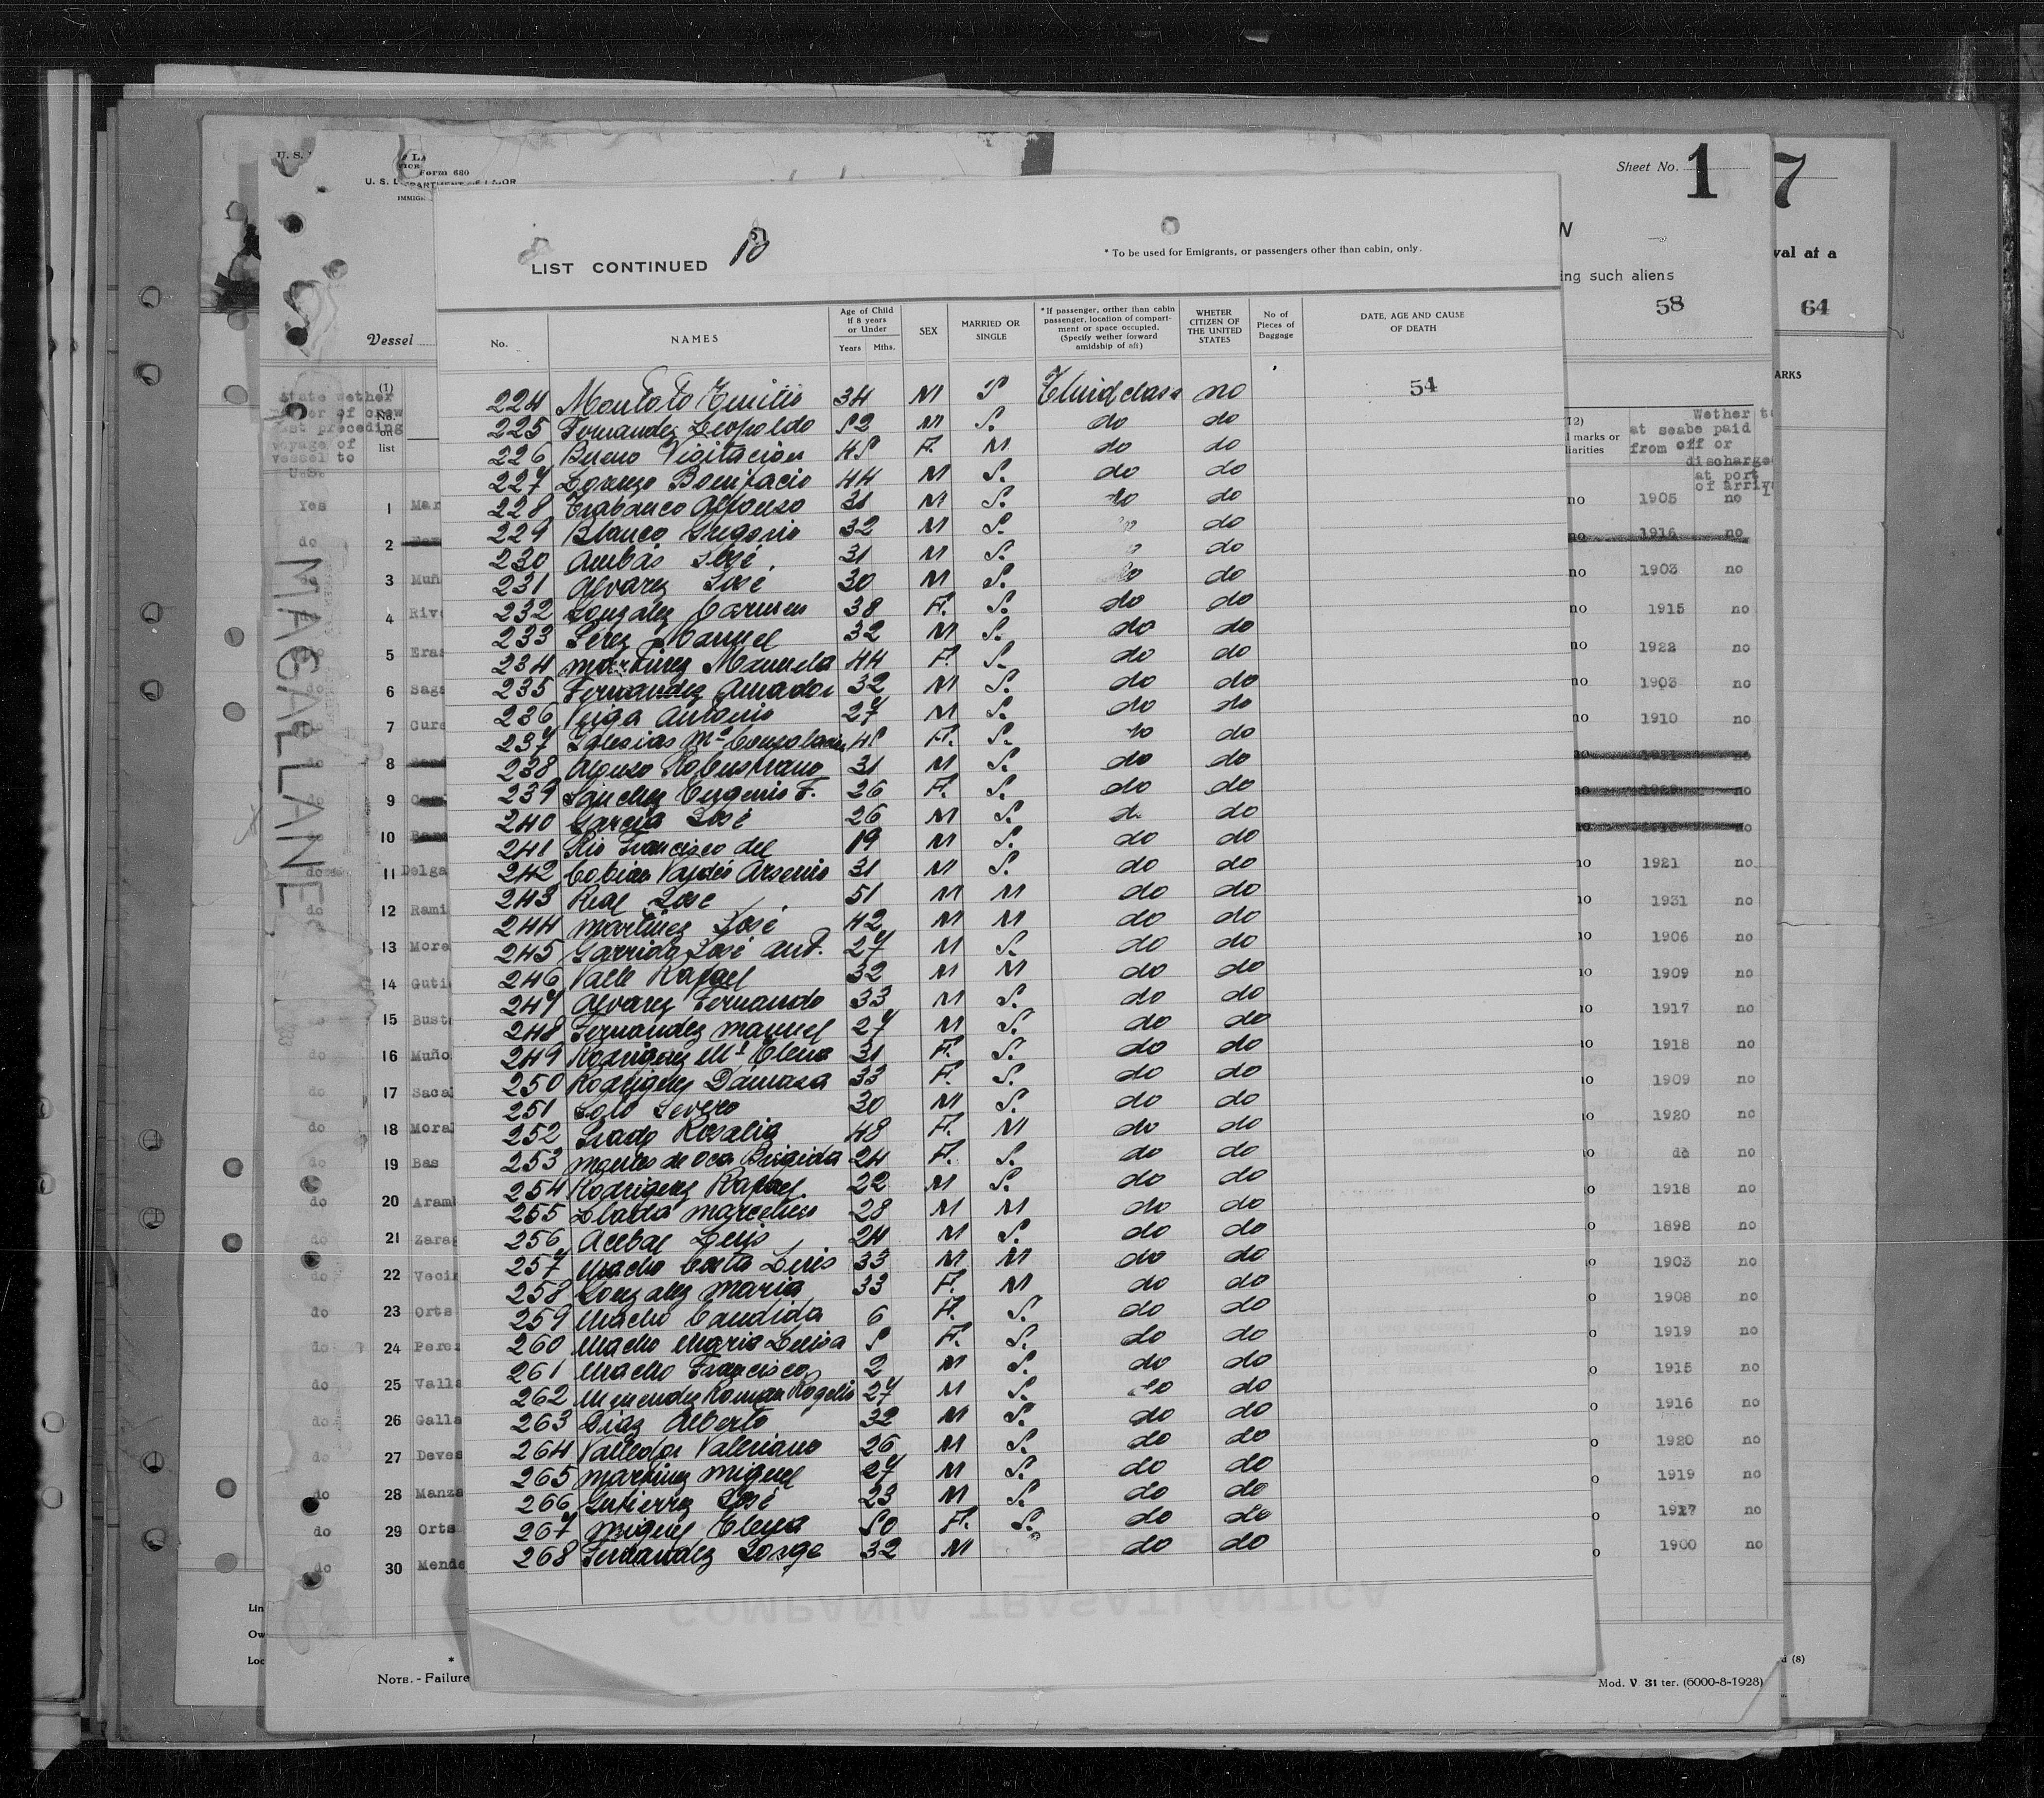 Form 680
IMMIG
Sheet No. 1
7
W
val at a
LIST CONTINUED 10
* To be used for Emigrants, or passengers other than cabin, only.
ing such aliens
58
64
Vessel
No.
NAMES
Age of Child If 8 years or Under
Years Mths.
SEX
MARRIED OR SINGLE
* If passenger, orther than cabin passenger, location of compartment or space occupied, (Specify wether forward amidship of aft)
WHETER CITIZEN OF THE UNITED STATES
No of Pieces of Baggage
DATE, AGE AND CAUSE OF DEATH
54
ARKS
(1)
No. on list
State wether
voyage of
vessel to
12)
l marks or
liarities
at sea
from
Wether to
be paid
off or
discharge
at port
of arriv
MAGALLANE
224 Montoto Emilio 34 M S Third class no
225 Fernandez Leopoldo 52 M S. do do
226 Bueno Visitacion 45 F. M do do
227 Lorenzo Bonifacio 44 M S. do do
228 Trabanco Alfonso 31 M S. do do
229 Blanco Gregorio 32 M S. do
230 Ambás José 31 M S. do
231 Alvarez José 30 M S. do do
232 Gonzalez Carmen 38 F. S. do do
233 Perez Manuel 32 M S. do do
234 Martinez Manuela 44 F. S. do do
235 Fernandez Amador 32 M S. do do
236 Veiga Antonio 27 M S. do do
237 Iglesias Mª Consolacion 45 F. S. do do
238 Alonso Robustiano 31 M S. do do
239 Sanchez Eugenio F. 26 F. S. do do
240 Garcia José 26 M S. do do
241 Rio Francisco del 19 M S. do do
242 Cobian Valdés Arsenio 31 M S. do do
243 Real José 51 M M do do
244 Martinez José 42 M M do do
245 Garrido José Ant. 27 M S. do do
246 Valle Rafael 32 M M do do
247 Alvarez Fernando 33 M S. do do
248 Fernandez Manuel 27 M S. do do
249 Rodriguez Mª Elena 31 F. S. do do
250 Rodriguez Damasa 33 F. S. do do
251 Soto Severo 30 M S. do do
252 Prado Rosalia 48 F. M do do
253 Montes de Oca Brigida 24 F. S. do do
254 Rodriguez Rafael 22 M S. do do
255 Llabda Marcelino 28 M M do do
256 Acebal Luis 24 M S. do do
257 Macho Costa Luis 33 M M do do
258 Gonzalez Maria 33 F. M do do
259 Macho Candida 6 F. S. do do
260 Macho Maria Luisa 5 F. S. do do
261 Macho Francisco 2 M S. do do
262 Menendez Roman Rogelio 27 M S. do do
263 Diaz Alberto 32 M S. do do
264 Valledor Valeriano 26 M S. do do
265 Martinez Miguel 27 M S. do do
266 Gutierrez José 23 M S. do do
267 Miguel Elena 50 F. S. do do
268 Fernandez Jorge 32 M do do
Yes 1 Mar
do 2
3 Muñ
4 Riv
5 Eras
6 Sags
7 Cure
8
9
10
11 Delga
12 Rami
13 More
14 Guti
15 Bust
do 16 Muño
do 17 Saca
do 18 Moral
do 19 Bas
do 20 Aram
21 Zarag
do 22 Vecin
do 23 Orts
do 24 Perez
do 25 Valla
do 26 Galla
do 27 Deves
do 28 Manza
do 29 Orts
do 30 Mende
no 1905 no
no 1916 no
no 1903 no
no 1915 no
no 1922 no
no 1903 no
no 1910 no
no
no
no
no 1921 no
no 1931 no
no 1906 no
no 1909 no
no 1917 no
no 1918 no
no 1909 no
no 1920 no
no do no
o 1918 no
o 1898 no
o 1903 no
o 1908 no
o 1919 no
o 1915 no
o 1916 no
o 1920 no
o 1919 no
o 1927 no
o 1900 no
COMPAÑIA TRASATLANTICA
Lin
Ow
Loc
*
NOTE. - Failure
d (8)
Mod. V 31 ter. (6000-8-1928)